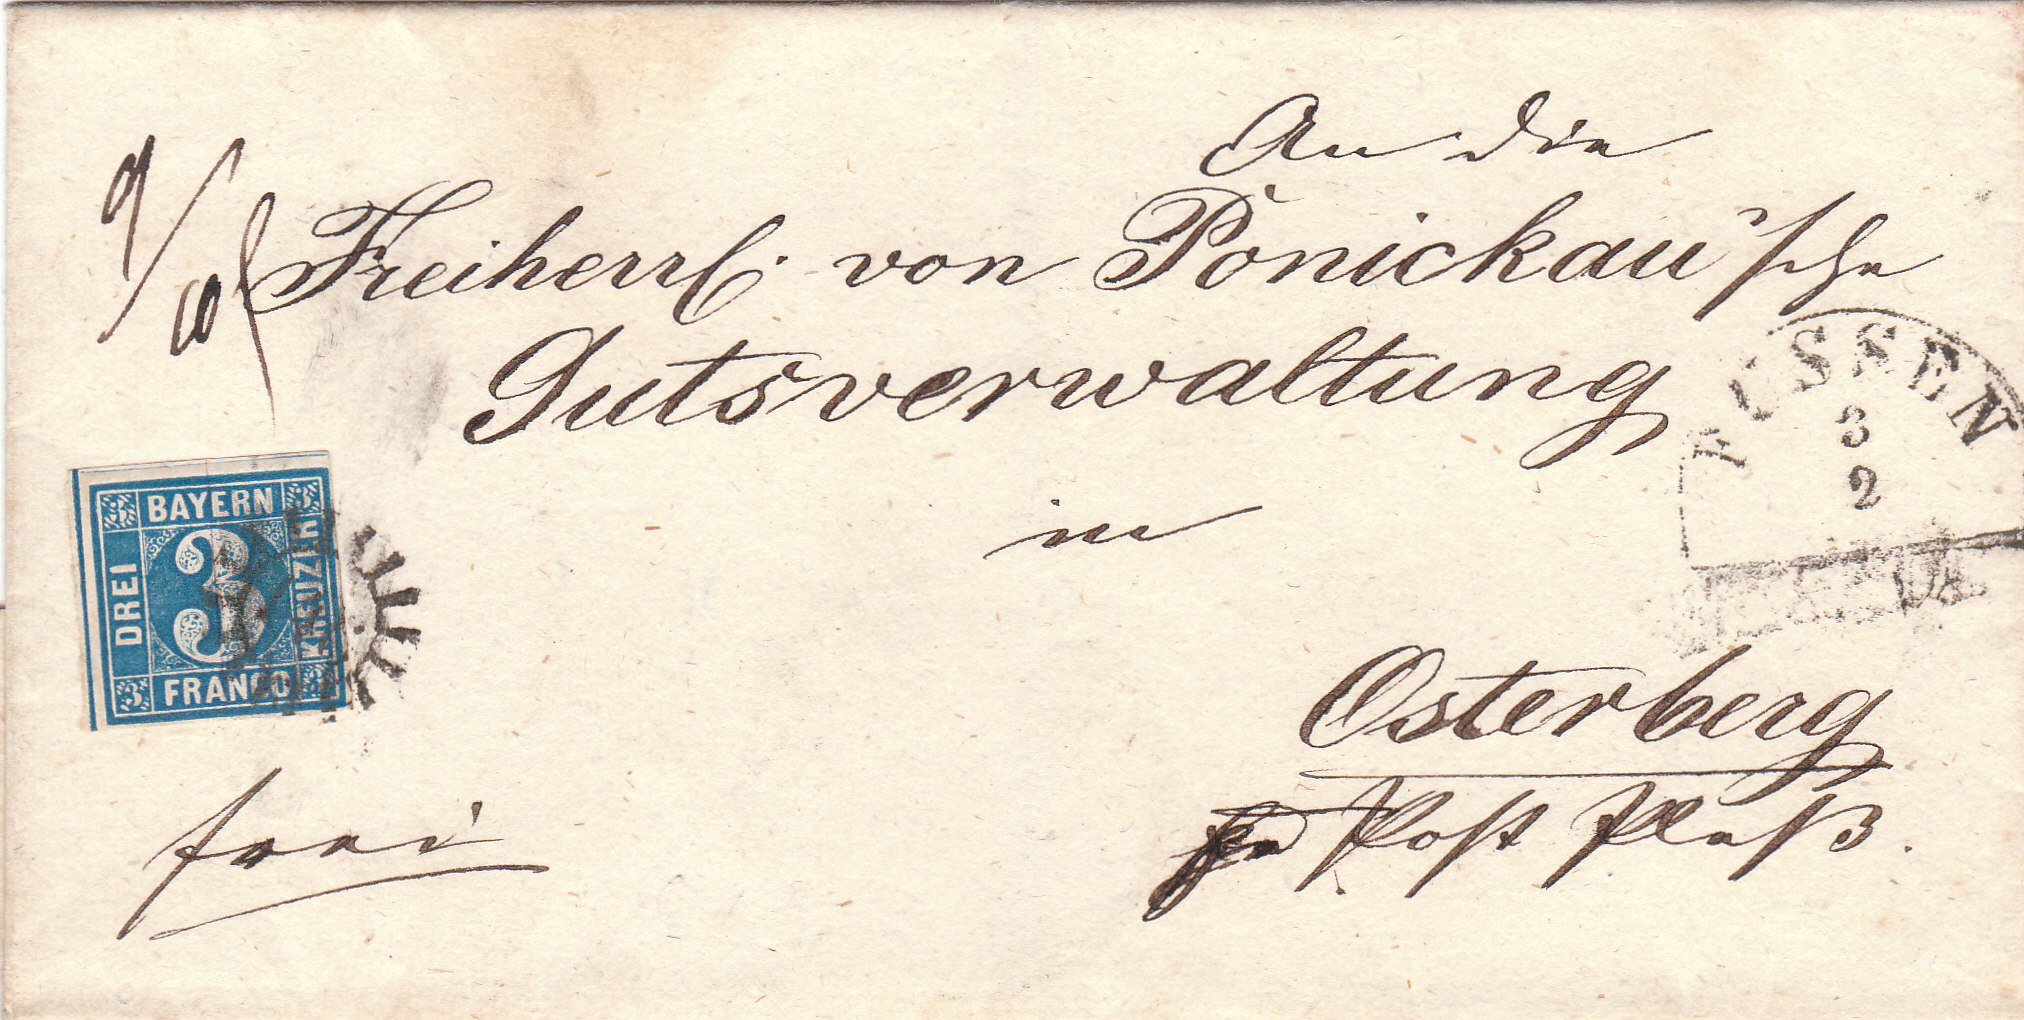 An die
Freiherrl. von Pönickau'sche
Gutsverwaltung
in
Osterberg
Post Pleß.
frei
BAYERN
DREI
3
KREUZER
FRANCO
3
3
3
FUSSEN
3
2